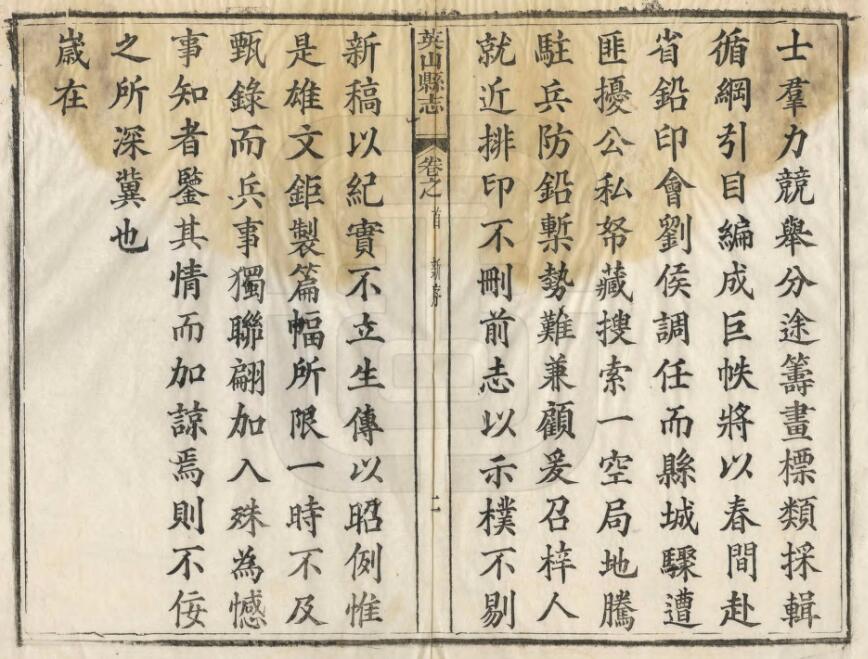 士羣力競舉分途籌畫標類採輯
循綱引目編成巨帙將以春間赴
省鉛印會劉侯調任而縣城驟遭
匪擾公私帑藏搜索一空局地騰
駐兵防鉛槧勢難兼顧爰召梓人
就近排印不刪前志以示樸不剔
英山縣志
卷之首 新序
二
新稿以紀實不立生傳以昭例惟
是雄文鉅製篇幅所限一時不及
甄錄而兵事獨聯翩加入殊為憾
事知者鑒其情而加諒焉則不佞
之所深冀也
歲在